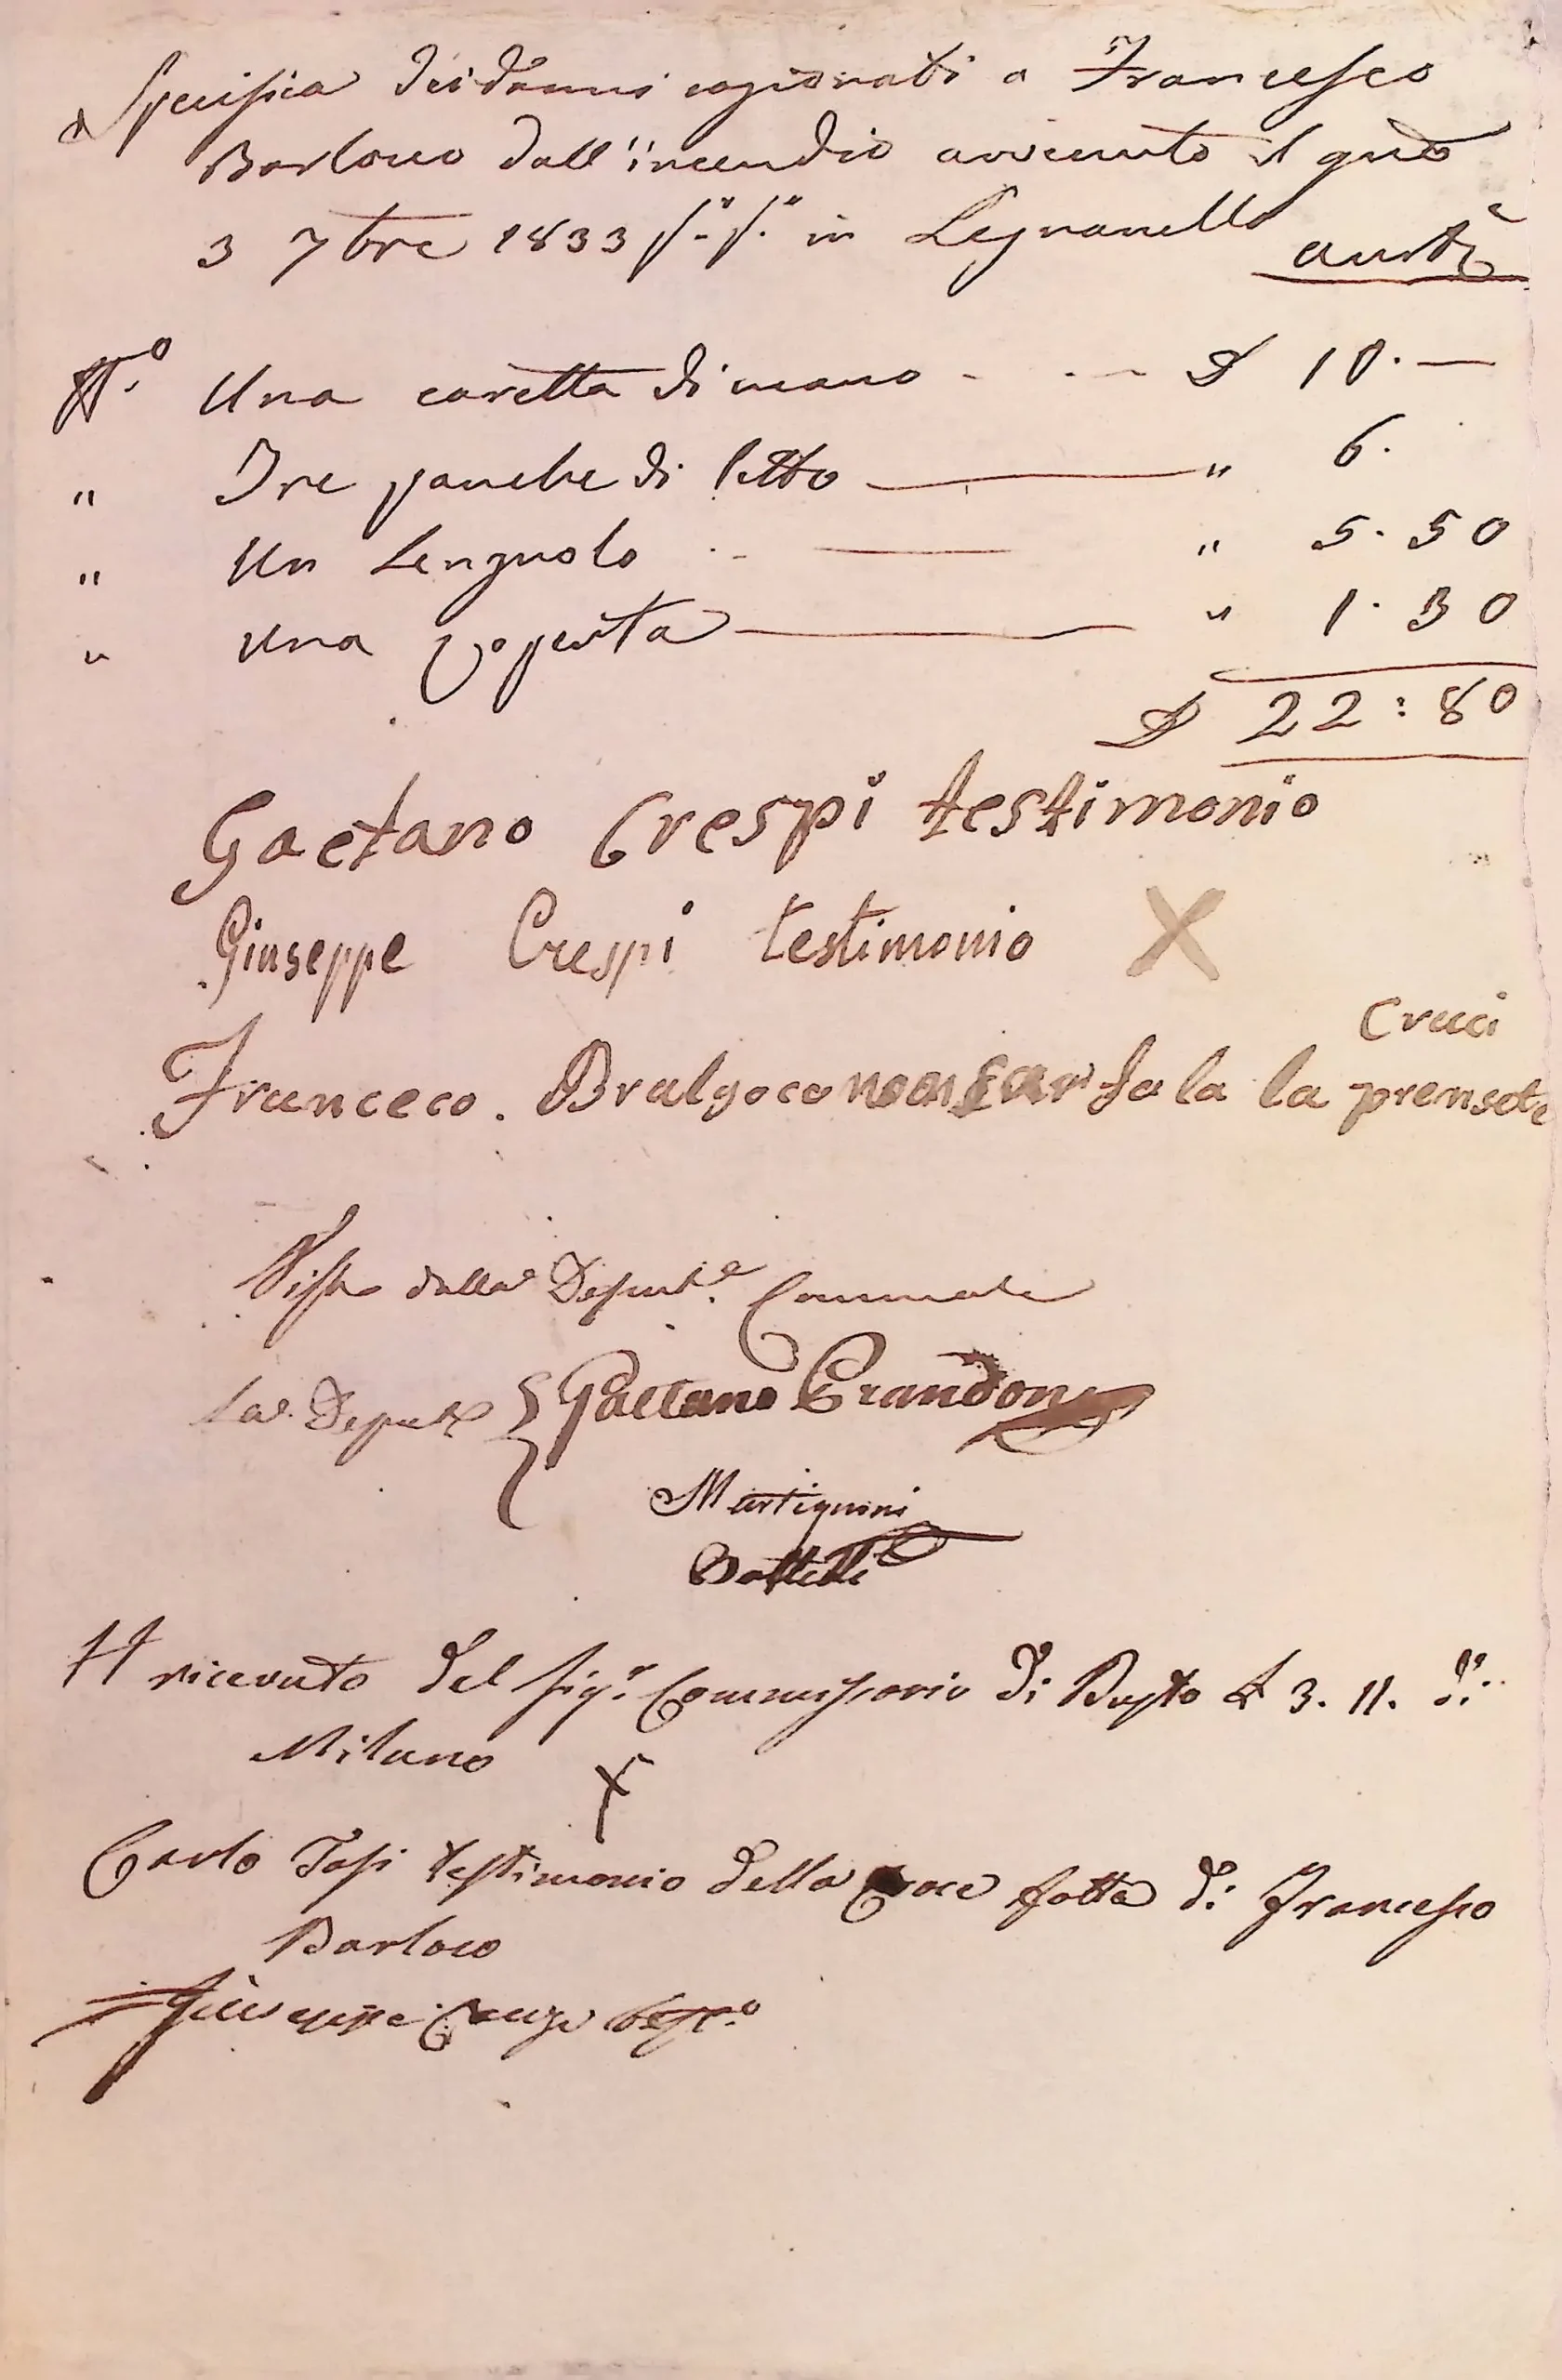 Specifica dei danni cagionati a Francesco
Barloco dall'incendio avvenuto il gno
3 7bre 1833 p.° p.° in Legnanello auste
N.° Una caretta di mano - - - £ 10. —
" Tre panche di letto — " 6.
" Un Lenzuolo - — " 5. 50
" Una coperta — " 1. 30
£ 22 : 80
Gaetano Crespi testimonio
Giuseppe Crespi testimonio X
Cruci
Franceco. la la prensete
Visto dalla Deput.e Comunale
La Deput.e { Gaetano Grandoni
Martignoni
ricevuto del Sig.r Commissario di Busto £ 3. 11.
Milano
Carlo Tosi testimonio della Croce fatta di Francesco
Barloco
Giuseppe